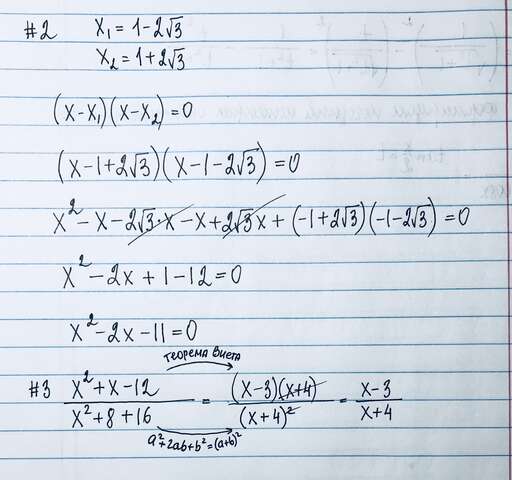 #2 x₁ = 1 - 2√3
x₂ = 1 + 2√3
(x - x₁)(x - x₂) = 0
(x - 1 + 2√3)(x - 1 - 2√3) = 0
x² - x - 2√3·x - x + 2√3x + (-1 + 2√3)(-1 - 2√3) = 0
x² - 2x + 1 - 12 = 0
x² - 2x - 11 = 0
теорема Виета
#3 (x² + x - 12)/(x² + 8 + 16) = ((x - 3)(x + 4))/((x + 4)²) = (x - 3)/(x + 4)
a² + 2ab + b² = (a + b)²